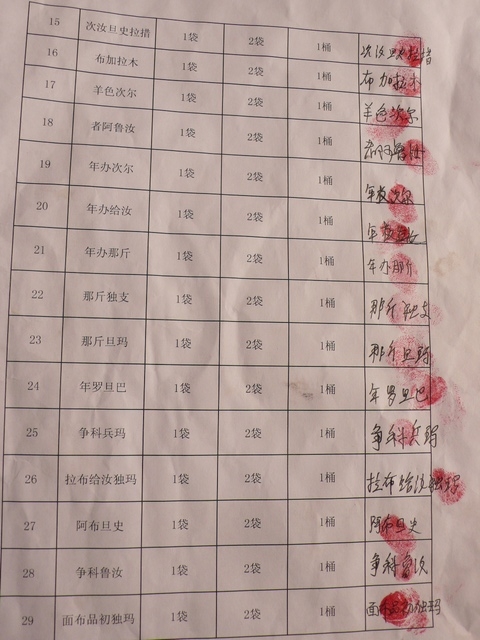 15 次汝旦史拉措 1袋 2袋 1桶 次汝旦史拉措
16 布加拉木 1袋 2袋 1桶 布加拉木
17 羊色次尔 1袋 2袋 1桶 羊色次尔
18 者阿鲁汝 1袋 2袋 1桶 者阿鲁汝
19 年办次尔 1袋 2袋 1桶 年办次尔
20 年办给汝 1袋 2袋 1桶 年办给汝
21 年办那斤 1袋 2袋 1桶 年办那斤
22 那斤独支 1袋 2袋 1桶 那斤独支
23 那斤旦玛 1袋 2袋 1桶 那斤旦玛
24 年罗旦巴 1袋 2袋 1桶 年罗旦巴
25 争科兵玛 1袋 2袋 1桶 争科兵玛
26 拉布给汝独玛 1袋 2袋 1桶 拉布给汝独玛
27 阿布旦史 1袋 2袋 1桶 阿布旦史
28 争科鲁汝 1袋 2袋 1桶 争科鲁汝
29 面布品初独玛 1袋 2袋 1桶 面布品初独玛